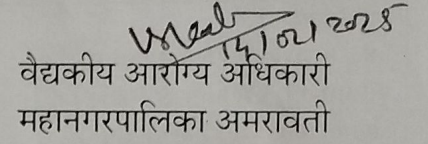 14/02/2025
वैद्यकीय आरोग्य अधिकारी
महानगरपालिका अमरावती